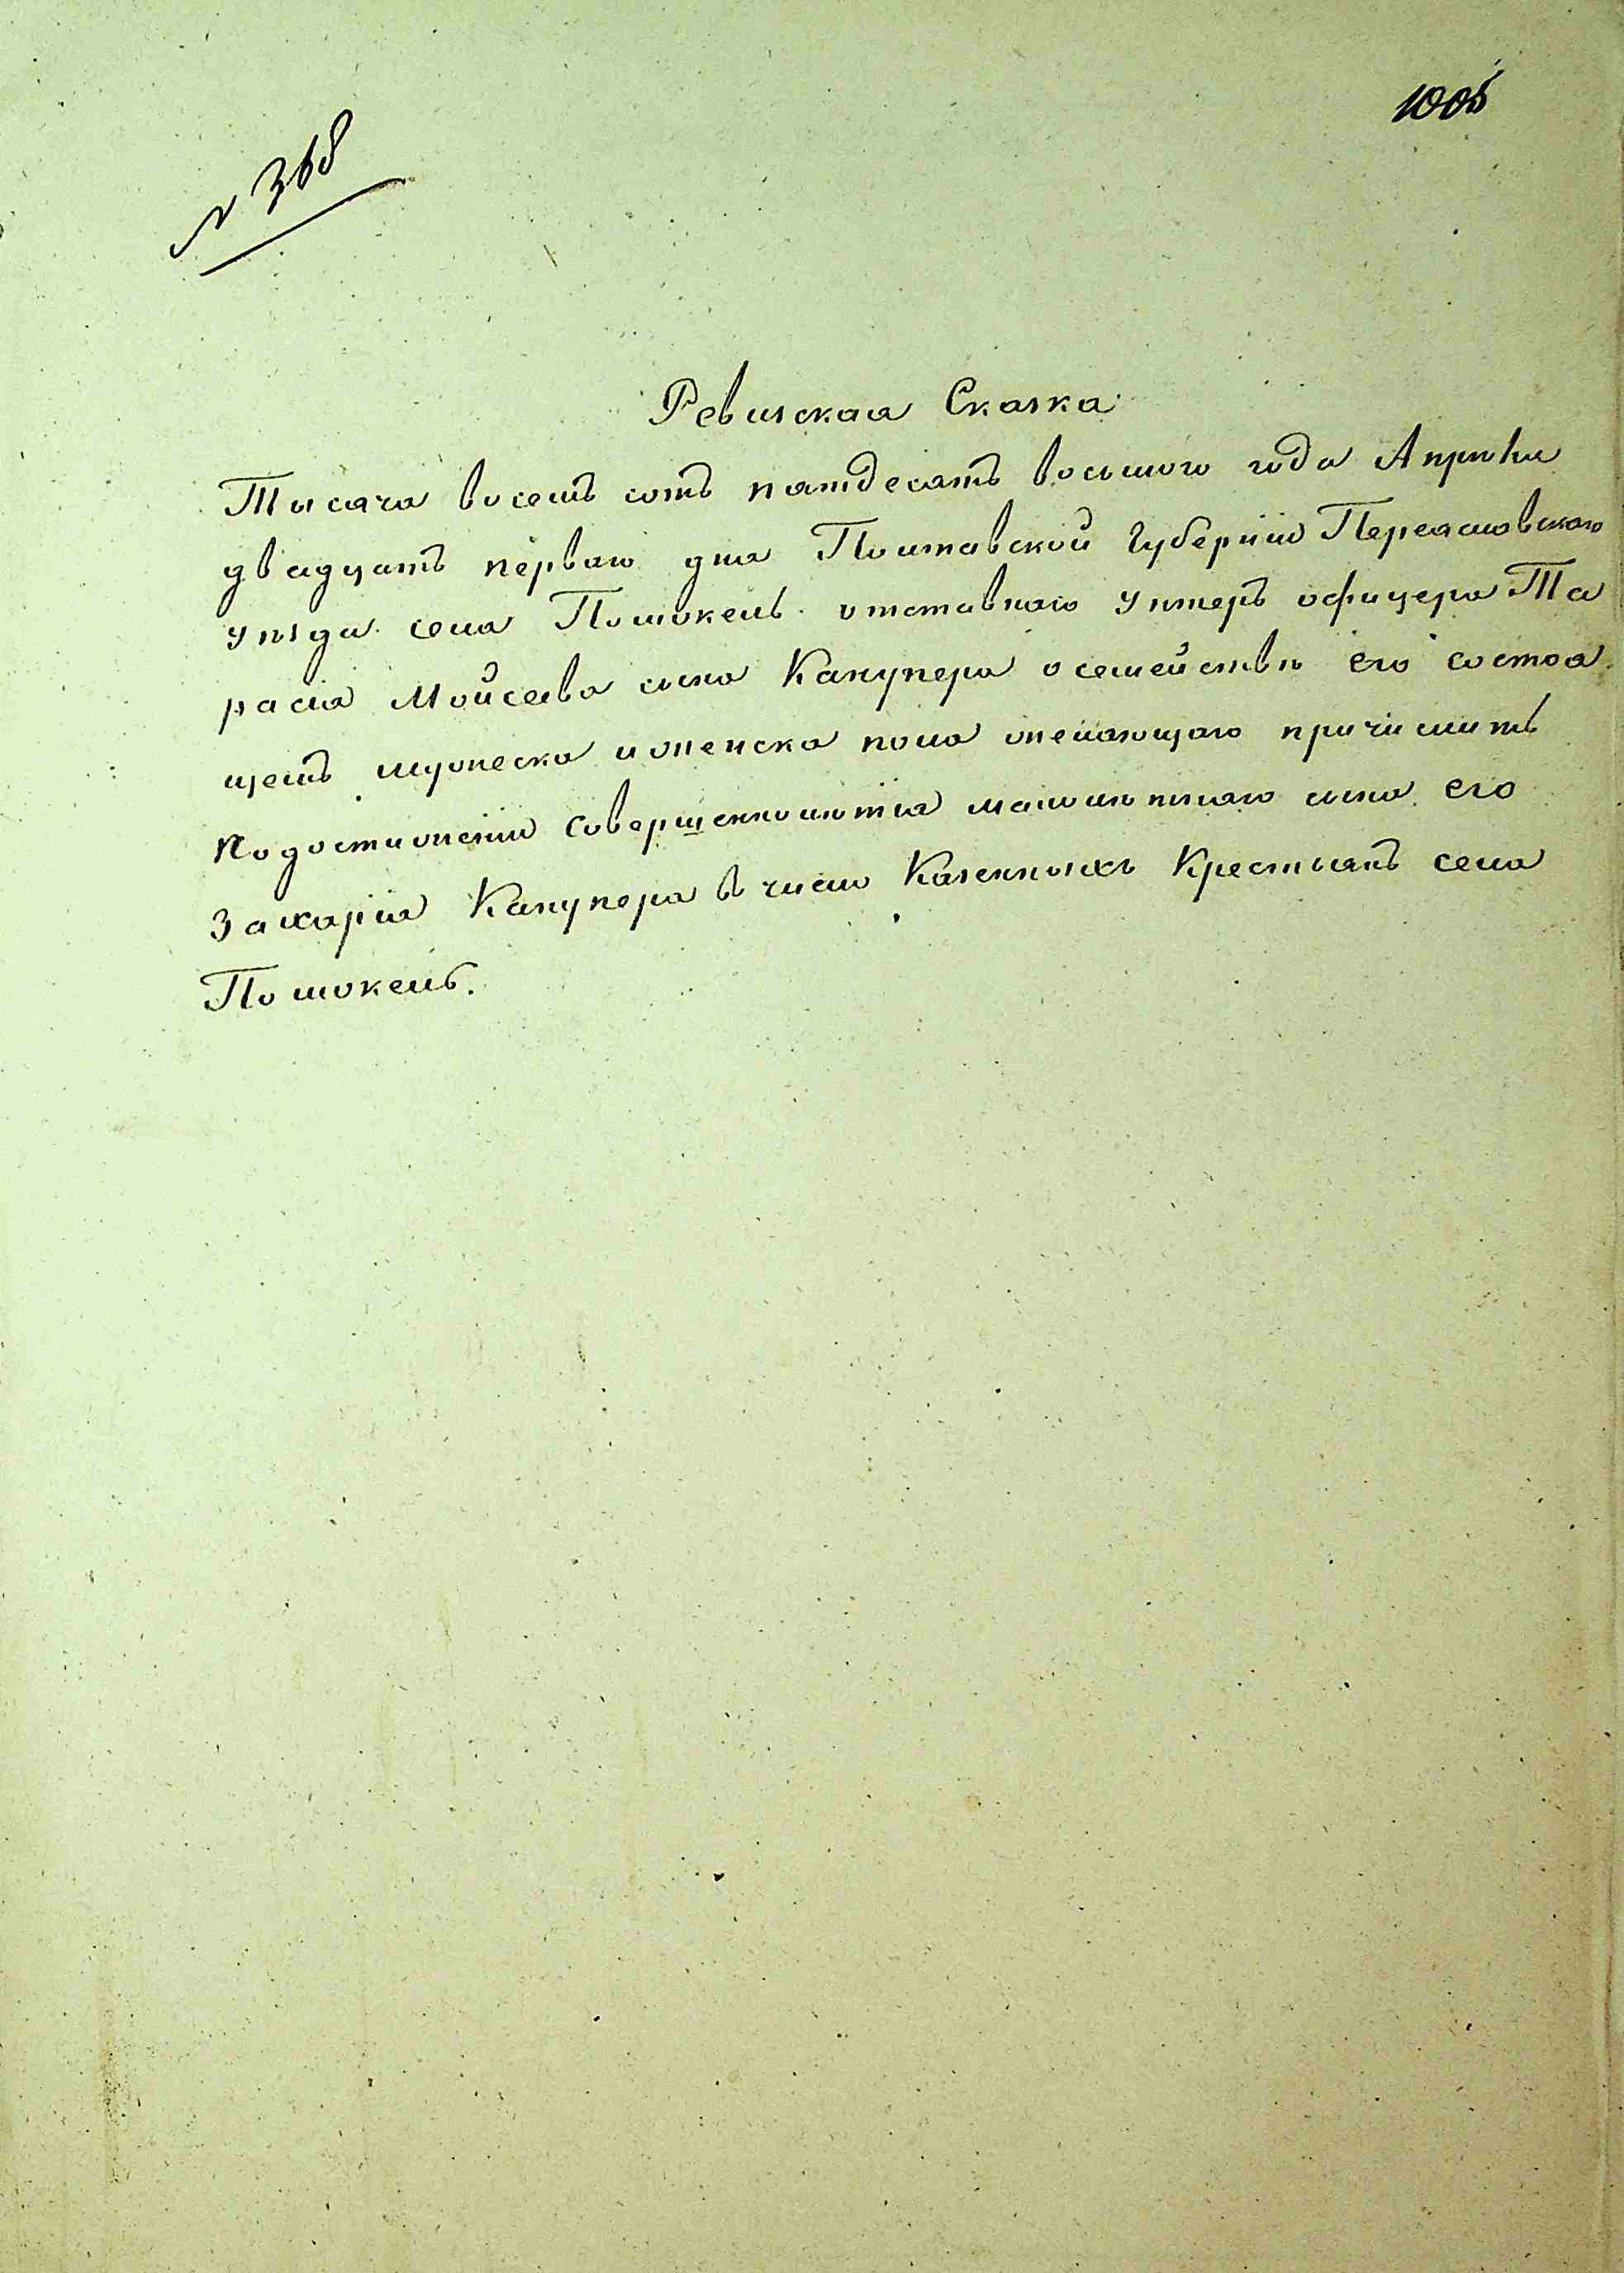 1005
№ 368
Ревизская Сказка
Тысяча восемь сотъ пятдесятъ восьмого года Апрѣля
двадцать перваго дня Полтавской Губерніи Переясловскаго
уѣзда села Положекъ отставнаго Унтеръ офицера Та
расія Мойсеева сына Канупера о семействѣ его состоя
щемъ мужеска и женска пола желающаго причислить
по достиженіи совершеннолѣтія малолѣтнаго сына его
Захарія Канупера в число Казенныхъ Крестьянъ села